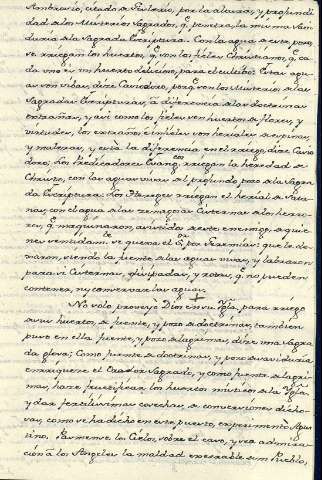 Ambrosio, citado de Paulerio, por la altura, y profundi
dad de los Misterios Sagrados, q.e penetra la misma Sabi
duria de la Sagrada Escriptura. Con la agua de este pozo,
se riegan los huertos, q.e son los fieles Christianos, q.e ca
da uno es un huerto delicioso, para el cultibo. Estas agu
as son vivas, dice Casiodoro, porq.e son los Misterios de las
Sagradas Escripturas, a diferencia de las doctrinas
estrañas, y asi como los fieles son huertos de flores, y
virtudes, los estraños e infieles son heriales de espinas,
y malezas, y está la diferencia en el riego, dice Casio
doro; los Predicadores Evang.cos riegan la heredad de
Christo, con las aguas vivas del profundo pozo de la Sagra
da Escriptura: los Hereges riegan el herial de Sata
nas, con el agua de las cenagosas Cisternas de los herro
res, q.e maquinaron, a vivida de este enemigo, de quie
nes sentidam.te se quexa el S.or por Jeremias: que le de
xaron, siendo la fuente de las aguas vivas, y labraron
para si Cisternas, disipadas, y rotas, q.e no pueden
contener, ni conservar las aguas.
No solo proveyo Dios en su Yg.la para riego
de sus huertos, de fuente, y pozo de doctrinas, tambien
puso en ella fuente, y pozo de lagrimas, dice una Sagra
da glosa; Como fuente de doctrinas, y pozo de sabiduria
enriquece el Orador Sagrado, y como fuente de lagri
mas, hace fructificar los huertos misticos de la Yg.la
y dar fertilisimas cosechas, de conversiones dicho
sas, como se ha dicho en este, puerto, experimentó Agus
tino. Pasmense los Cielos, sobre el caso, y sea admira
cion a los Angeles la maldad execrable de un Pueblo,